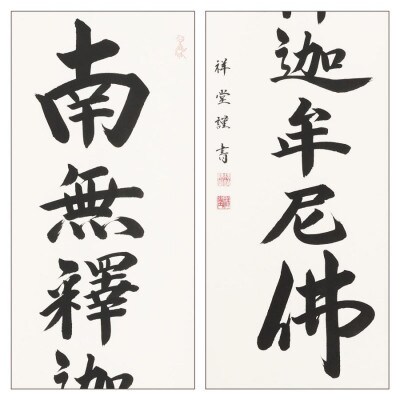 南無釋迦
迦牟尼佛
祥堂謹書